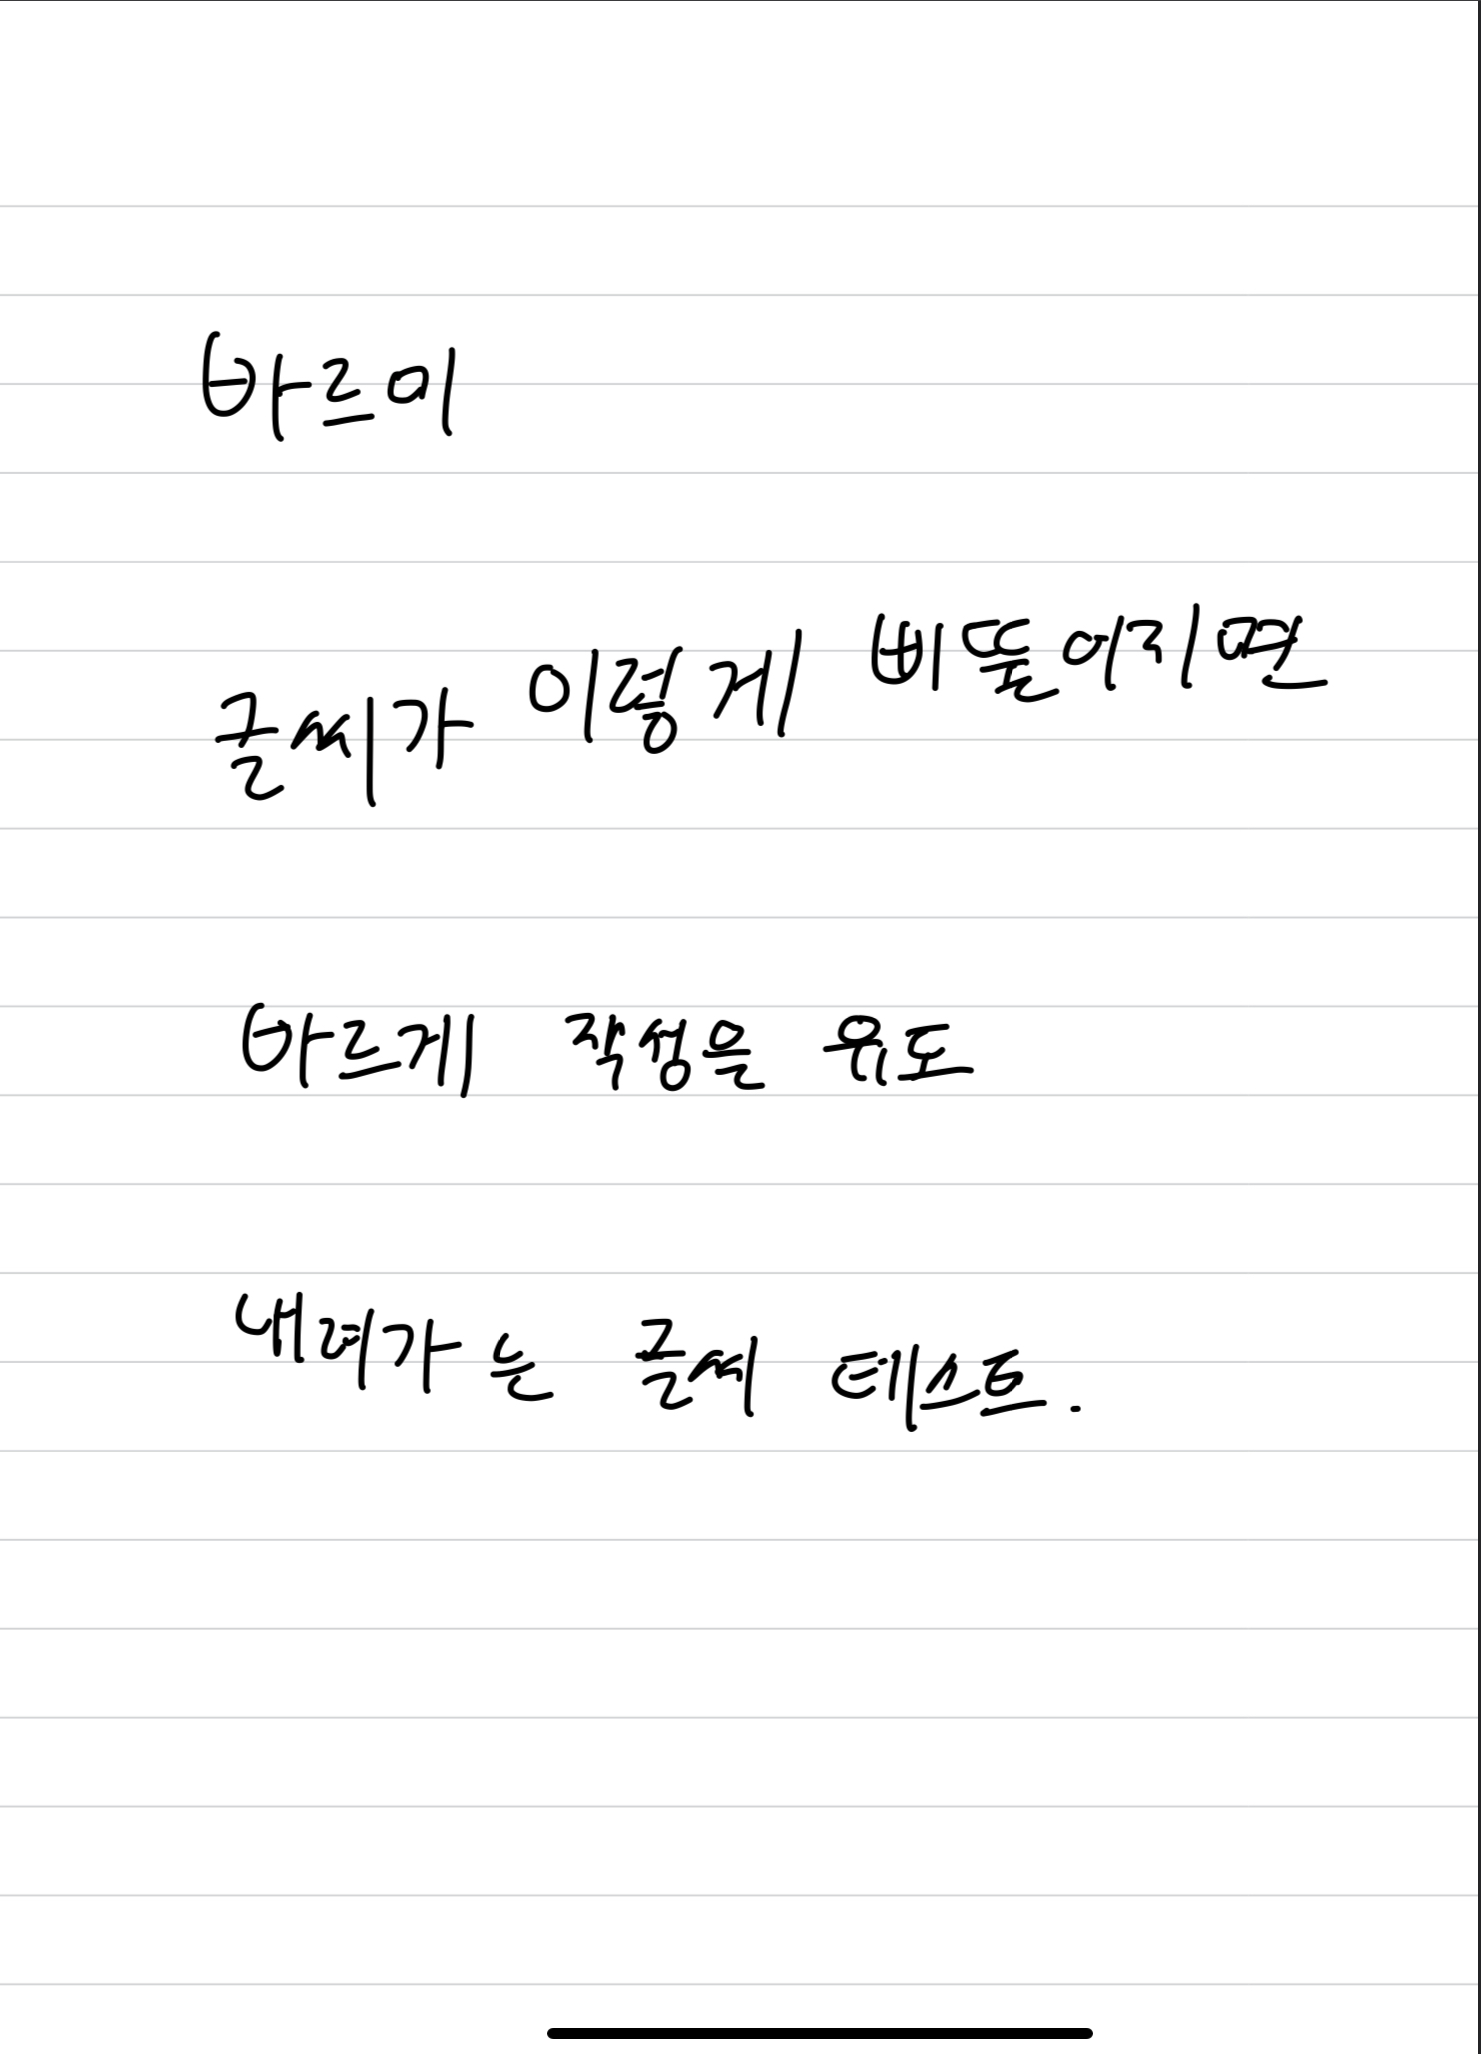 바르미
글씨가 이렇게 삐뚤어지면
바르게 작성을 유도
내려가는 글씨 테스트.